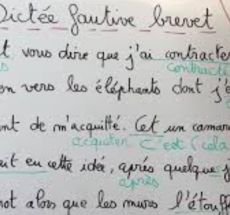 Dictée fautive brevet
vous dire que j'ai contracter
contracté
en vers les éléphants dont j'e
nt de m'acquitté. Cet un camara
acquitter C'est (cela
ait eu cette idée, après quelque j
après
not alors que les murs l'étouff